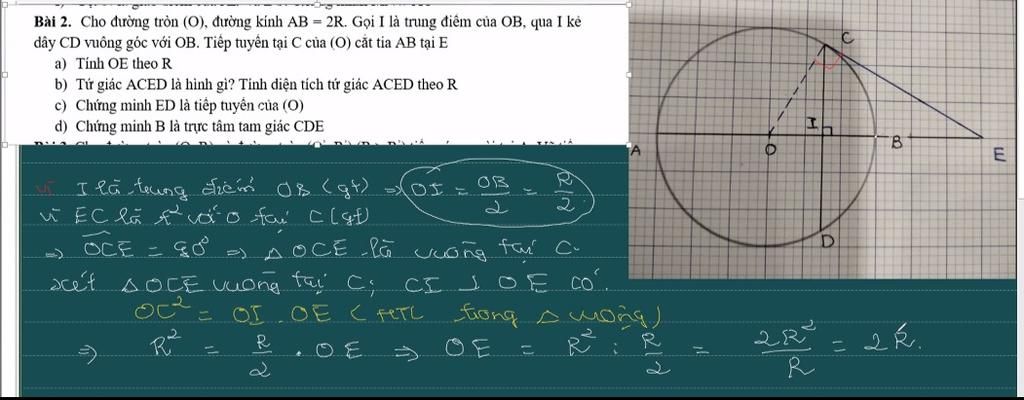 Bài 2. Cho đường tròn (O), đường kính AB = 2R. Gọi I là trung điểm của OB, qua I kẻ
dây CD vuông góc với OB. Tiếp tuyến tại C của (O) cắt tia AB tại E
a) Tính OE theo R
b) Tứ giác ACED là hình gì? Tính diện tích tứ giác ACED theo R
c) Chứng minh ED là tiếp tuyến của (O)
d) Chứng minh B là trực tâm tam giác CDE
C
I
A
O
B
E
D
vì I là trung điểm OB (gt) => OI = OB/2 = R/2
vì EC là t² với O tại C (gt)
=> OCE = 90° => △ OCE là vuông tại C.
xét △ OCE vuông tại C; CI ⊥ OE có:
OC² = OI . OE ( HTL trong △ vuông)
=> R² = R/2 . OE => OE = R² : R/2 = 2R²/R = 2R.